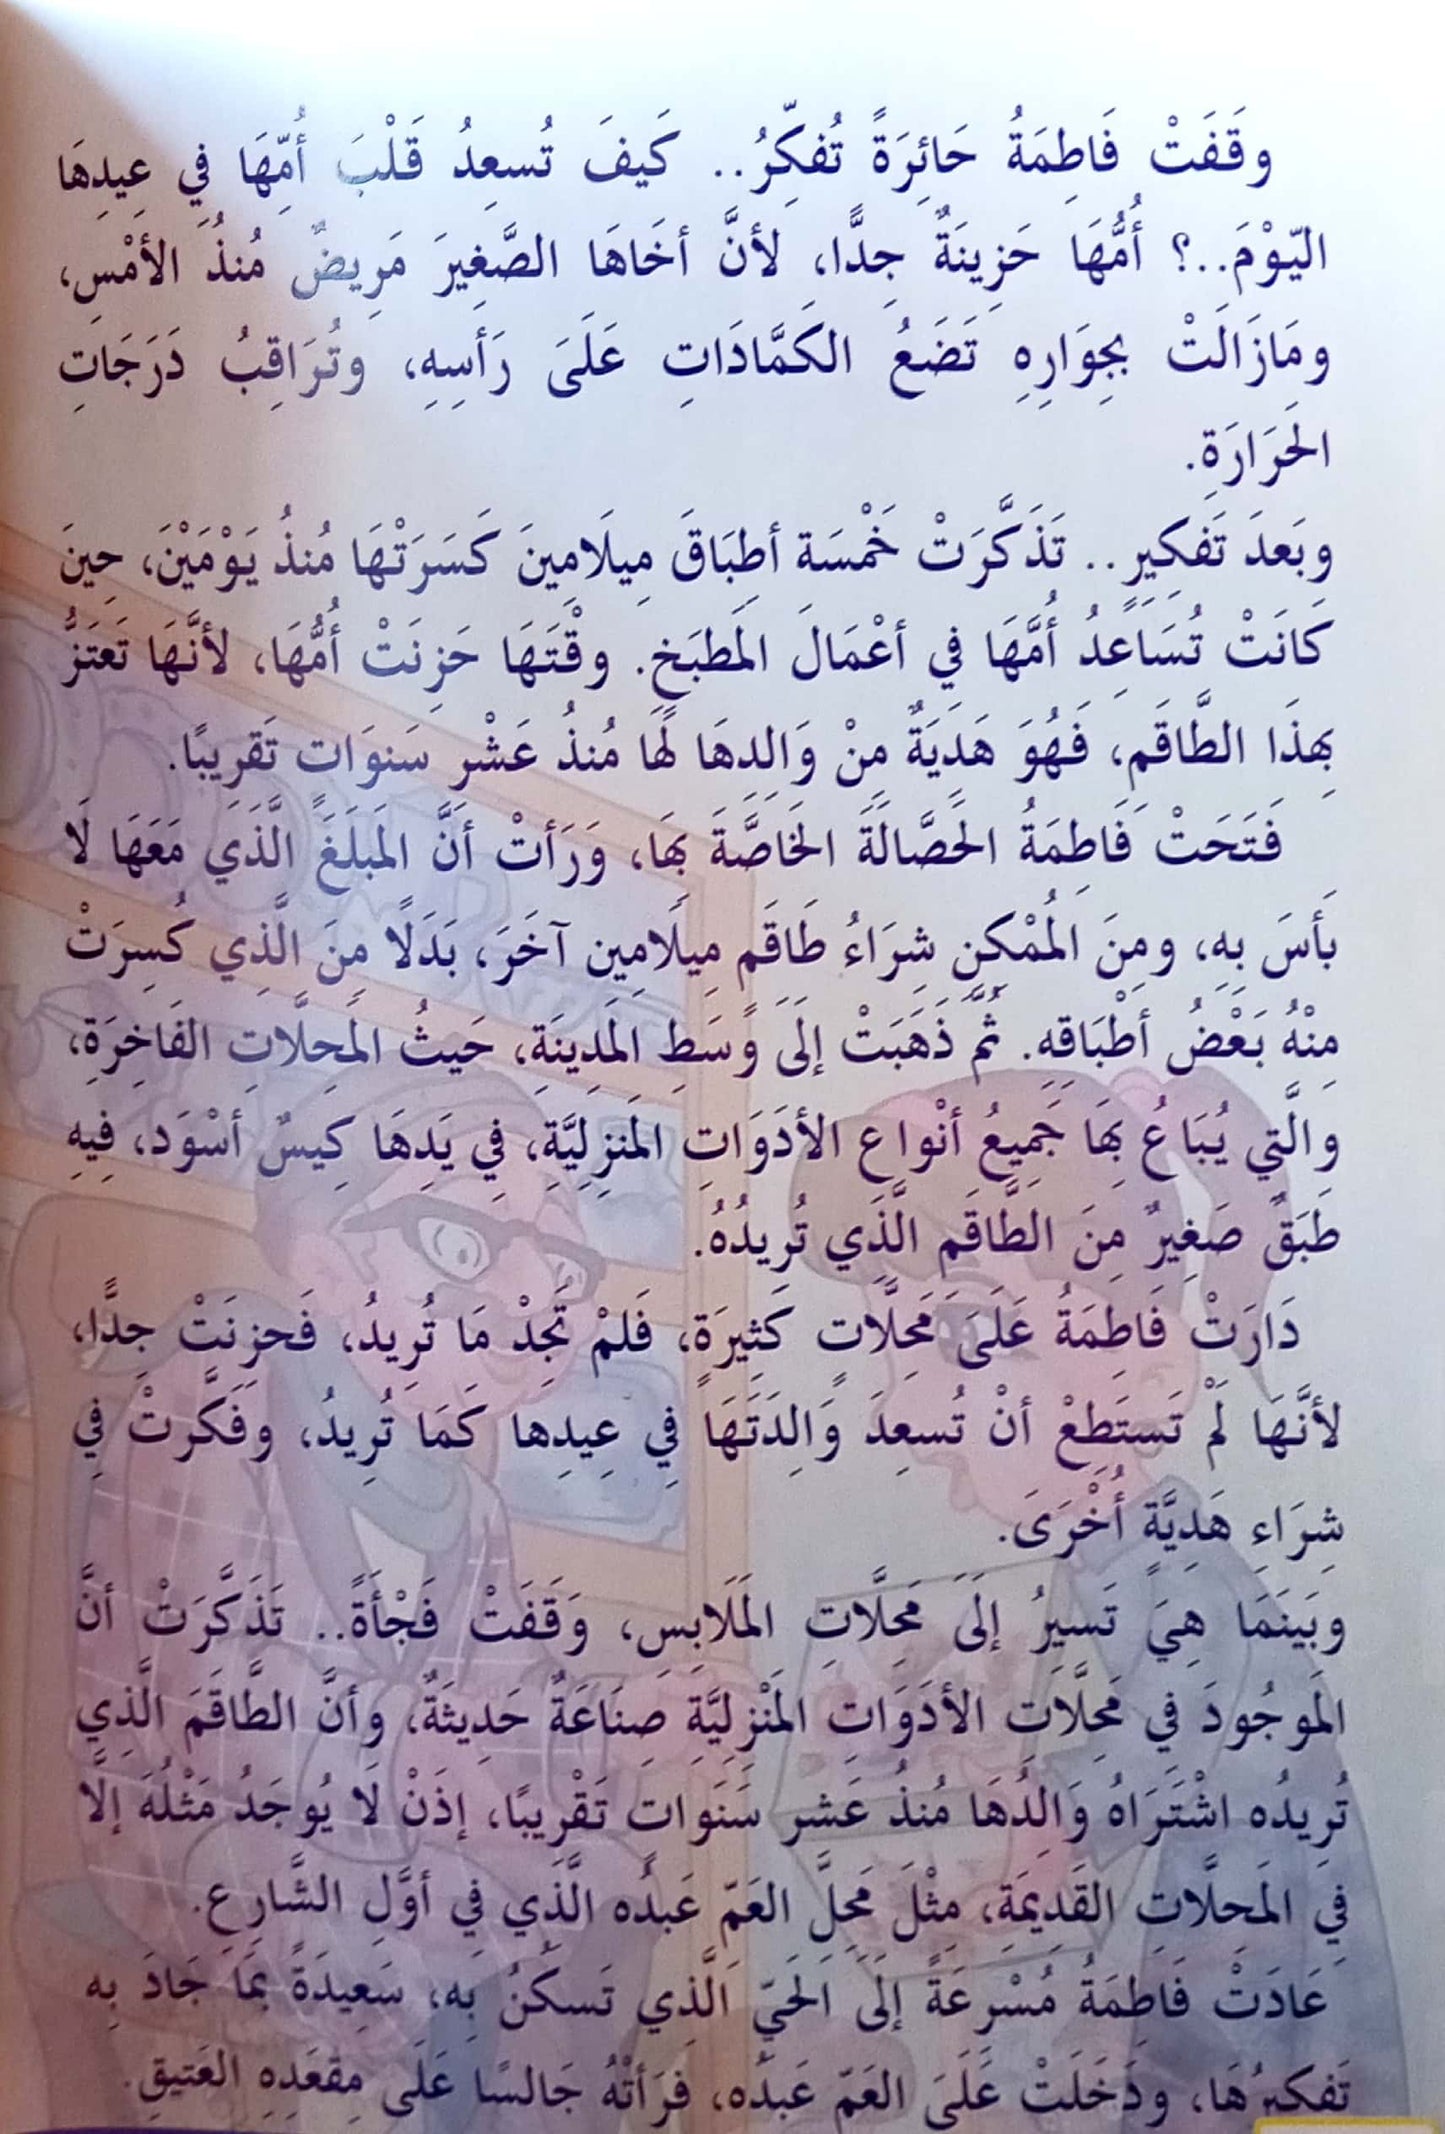 وقَفَتْ فَاطِمَةُ حَائِرَةً تُفكِّرُ.. كَيفَ تُسعِدُ قَلْبَ أُمِّهَا فِي عِيدِهَا
اليّوْمَ..؟ أُمُّهَا حَزِينَةٌ جِدًّا، لأنَّ أخَاهَا الصَّغِيرَ مَرِيضٌ مُنذُ الأمْسِ،
ومَازَالَتْ بجِوَارِهِ تَضَعُ الكَمَّادَاتِ عَلَىَ رَأسِهِ، وتُرَاقِبُ دَرَجَاتِ
الحَرَارَةِ.
وبَعدَ تَفكِيرٍ.. تَذَكَّرَتْ خَمْسَة أطبَاقَ مِيلَامِينَ كَسَرَتْهَا مُنذُ يَوْمَيْنَ، حِينَ
كَانَتْ تُسَاعِدُ أُمَّهَا فِي أعْمَالَ المَطبَخِ. وقْتَهَا حَزِنَتْ أُمُّهَا، لأنَّهَا تَعتَزُّ
بِهذَا الطَّاقَمِ، فَهُوَ هَدِيَةٌ مِنْ وَالِدِهَا لَهَا مُنذُ عَشْرِ سَنوَات تَقرِيبًا.
فَتَحَتْ فَاطِمَةُ الحَصَّالَةَ الخَاصَّةَ بهَا، وَرَأتْ أنَّ المَبلَغَ الَّذَي مَعَهَا لَا
بَأسَ بِهِ، ومِنَ المُمْكنِ شِرَاءُ طَاقَمِ مِيلَامِين آخَرَ، بَدَلًا مِنَ الَّذِي كُسِرَتْ
مِنْهُ بَعْضُ أطْبَاقه. ثُمَّ ذَهَبَتْ إلَىَ وَسَطِ المَدِينَةِ، حَيثُ المَحِلَّاتِ الفَاخِرَةِ،
والَّتِي يُبَاعُ بهَا جَمِيعُ أنْواعِ الأدَوَاتِ المَنزِلِيَّةِ، فِي يَدِهَا كِيسٌ أسْوَد، فِيهِ
طَبَقٌ صَغِيرٌ مِنَ الطَّاقَمِ الَّذَي تُرِيدُهُ.
دَارَتْ فَاطِمَةُ عَلَىَ مَحِلَّاتٍ كَثِيرَةٍ، فَلمْ تَجِدْ مَا تُرِيدُ، فَحزِنَتْ جِدًّا،
لأنَّهَا لَمْ تَستَطِعْ أنْ تُسعِدَ وَالِدَتَهَا فِي عِيدِها كَمَا تُرِيدُ، وَفَكَّرتْ فِي
شِرَاءِ هَدِيَّةٍ أُخْرَىَ.
وبَينَمَا هِيَ تَسيرُ إلَىَ مَحِلَّاتِ المَلَابسِ، وَقَفَتْ فَجْأةً.. تَذَكَّرَتْ أنَّ
المَوجُودَ فِي مَحِلَّات الأدَوَاتِ المَنْزِلِيَّةِ صِنَاعَةٌ حَدِيثَةٌ، وأنَّ الطَّاقَمَ الَّذِي
تُرِيدُه اشْتَرَاهُ وَالِدُهَا مُنذُ عَشرِ سَنَوات تَقْرِيبًا، إذَنْ لَا يُوجَدُ مَثْلُهُ إلَّا
فِي المَحلَّاتِ القَدِيمَةِ، مِثْلَ مَحِلَّ العَمّ عَبدُه الَّذَي فِي أوَّلِ الشَّارِعِ.
عَادَتْ فَاطِمَةُ مُسْرِعَةً إلَىَ الحَيِّ الَّذِي تَسكُنُ بِهِ، سَعِيدَةً بمَا جَادَ بِه
تَفكيرُهَا، ودَخَلَتْ عَلَىَ العَمّ عَبدُه، فرَأتْهُ جَالسًا عَلَى مِقعَدِهِ العَتيقِ.